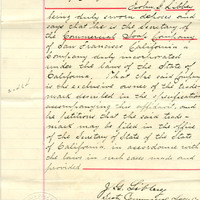 John S. Libbey
being duly sworn deposes and
says that he is the Secretary of
the Commercial Soap Company
of San Francisco California a
Company duly incorporated
under the laws of the State of
California. That the said Company
is the exclusive owner of the trade
mark described in the specification
accompanying this affidavit, and
he petitions that the said trade-
mark may be filed in the office
of the Secretary of State of the State
of California, in accordance with
the laws in such case made and
provided.
Libbey
Sect Commercial Soap Co